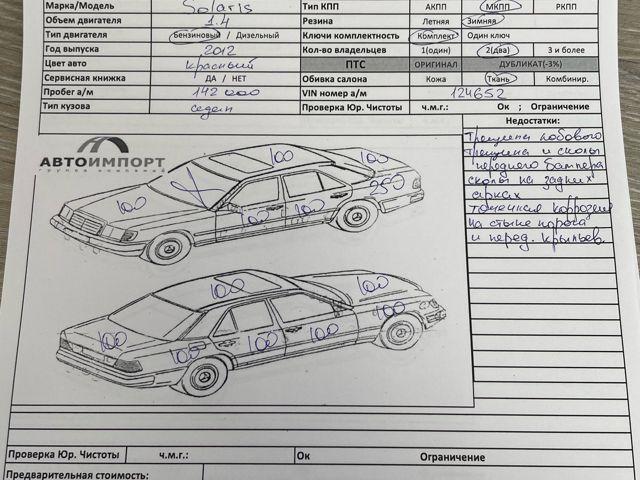 Марка/Модель Solaris Тип КПП АКПП МКПП РКПП
Объем двигателя 1.4 Резина Летняя Зимняя
Тип двигателя Бензиновый / Дизельный Ключи комплектность Комплект Один ключ
Год выпуска 2012 Кол-во владельцев 1(один) 2(два) 3 и более
Цвет авто красный ПТС ОРИГИНАЛ ДУБЛИКАТ(-3%)
Сервисная книжка ДА / НЕТ Обивка салона Кожа Ткань Комбинир.
Пробег а/м 142 000 VIN номер а/м 124652
Тип кузова седан Проверка Юр. Чистоты ч.м.г.: Ок ; Ограничение
Недостатки:
АВТОИМПОРТ
группа компаний
Трещина лобового
трещина и сколы
переднего бампера
сколы на задних
арках
точечная коррозия
на стыке порога
и перед. крыльев
100 100
100 250
100 100
100 100
100 100 100 100 100
Проверка Юр. Чистоты ч.м.г.: Ок Ограничение
Предварительная стоимость: